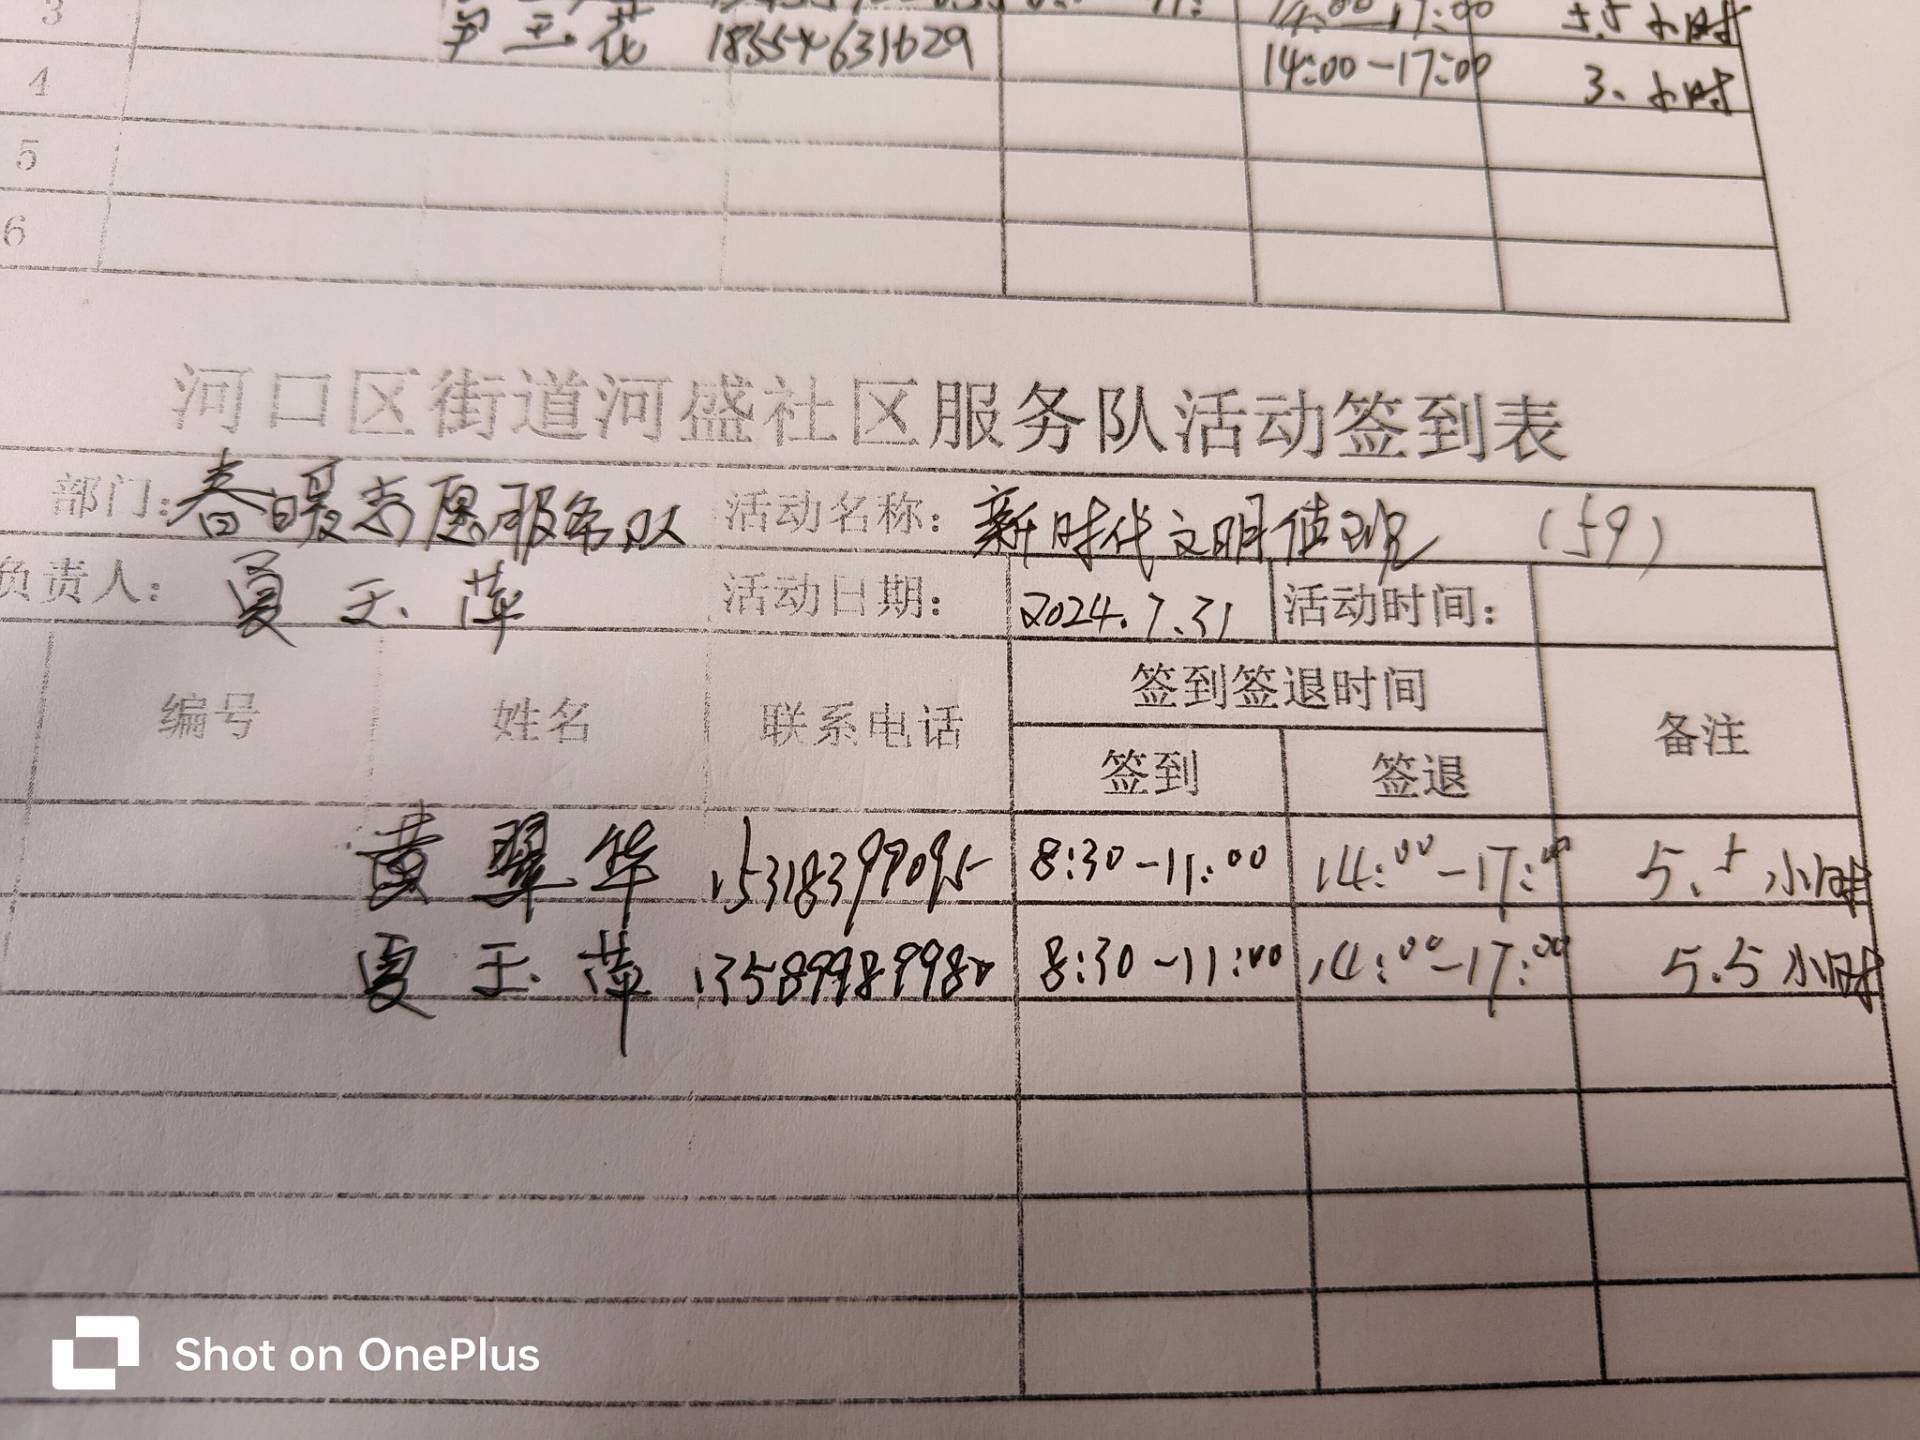 3 14:00-17:00 5.5小时
4 尹玉花 18554631629 14:00-17:00 3.小时
5
6
河口区街道河盛社区服务队活动签到表
部门: 春暖志愿服务队 活动名称: 新时代文明值班 (59)
负责人: 夏玉萍 活动日期: 2024.7.31 活动时间:
编号 姓名 联系电话 签到签退时间 备注
签到 签退
黄翠华 15318399095 8:30-11:00 14:00-17:00 5.5小时
夏玉萍 13589989980 8:30-11:00 14:00-17:00 5.5小时
Shot on OnePlus